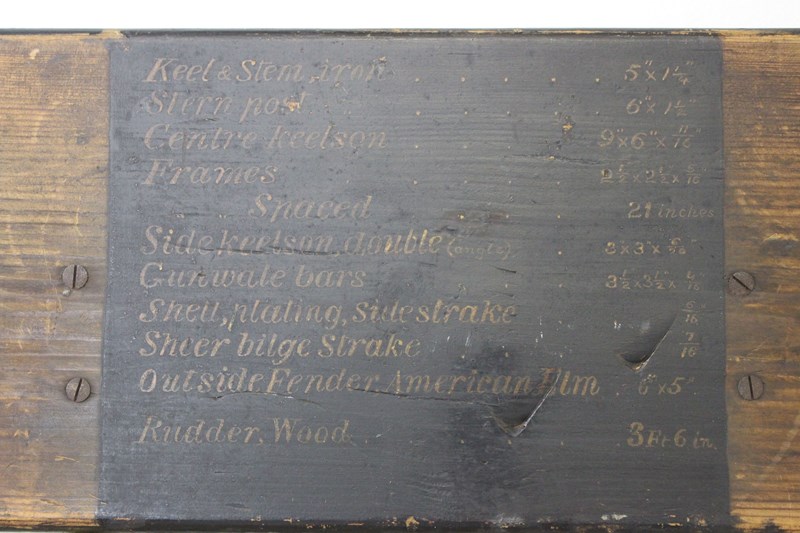 Keel & Stem, iron . . . . . 5"x 1 1/4"
Stern post . . . . . 6"x 1 1/2"
Centre keelson . . . . . 9"x 6"x 11/16"
Frames . . . . . 2 1/2"x 2 1/2"x 5/16"
" " Spaced . . . . . 21 inches
Side keelson, double (angle) . . 3"x 3"x 5/16"
Gunwale bars " . . 3 1/2"x 3 1/2"x 6/16"
Shell, plating, side strake 6/16"
Sheer bilge Strake 7/16"
Outside Fender American Elm . 6"x 5"
Rudder, Wood . 3 Ft 6 in.